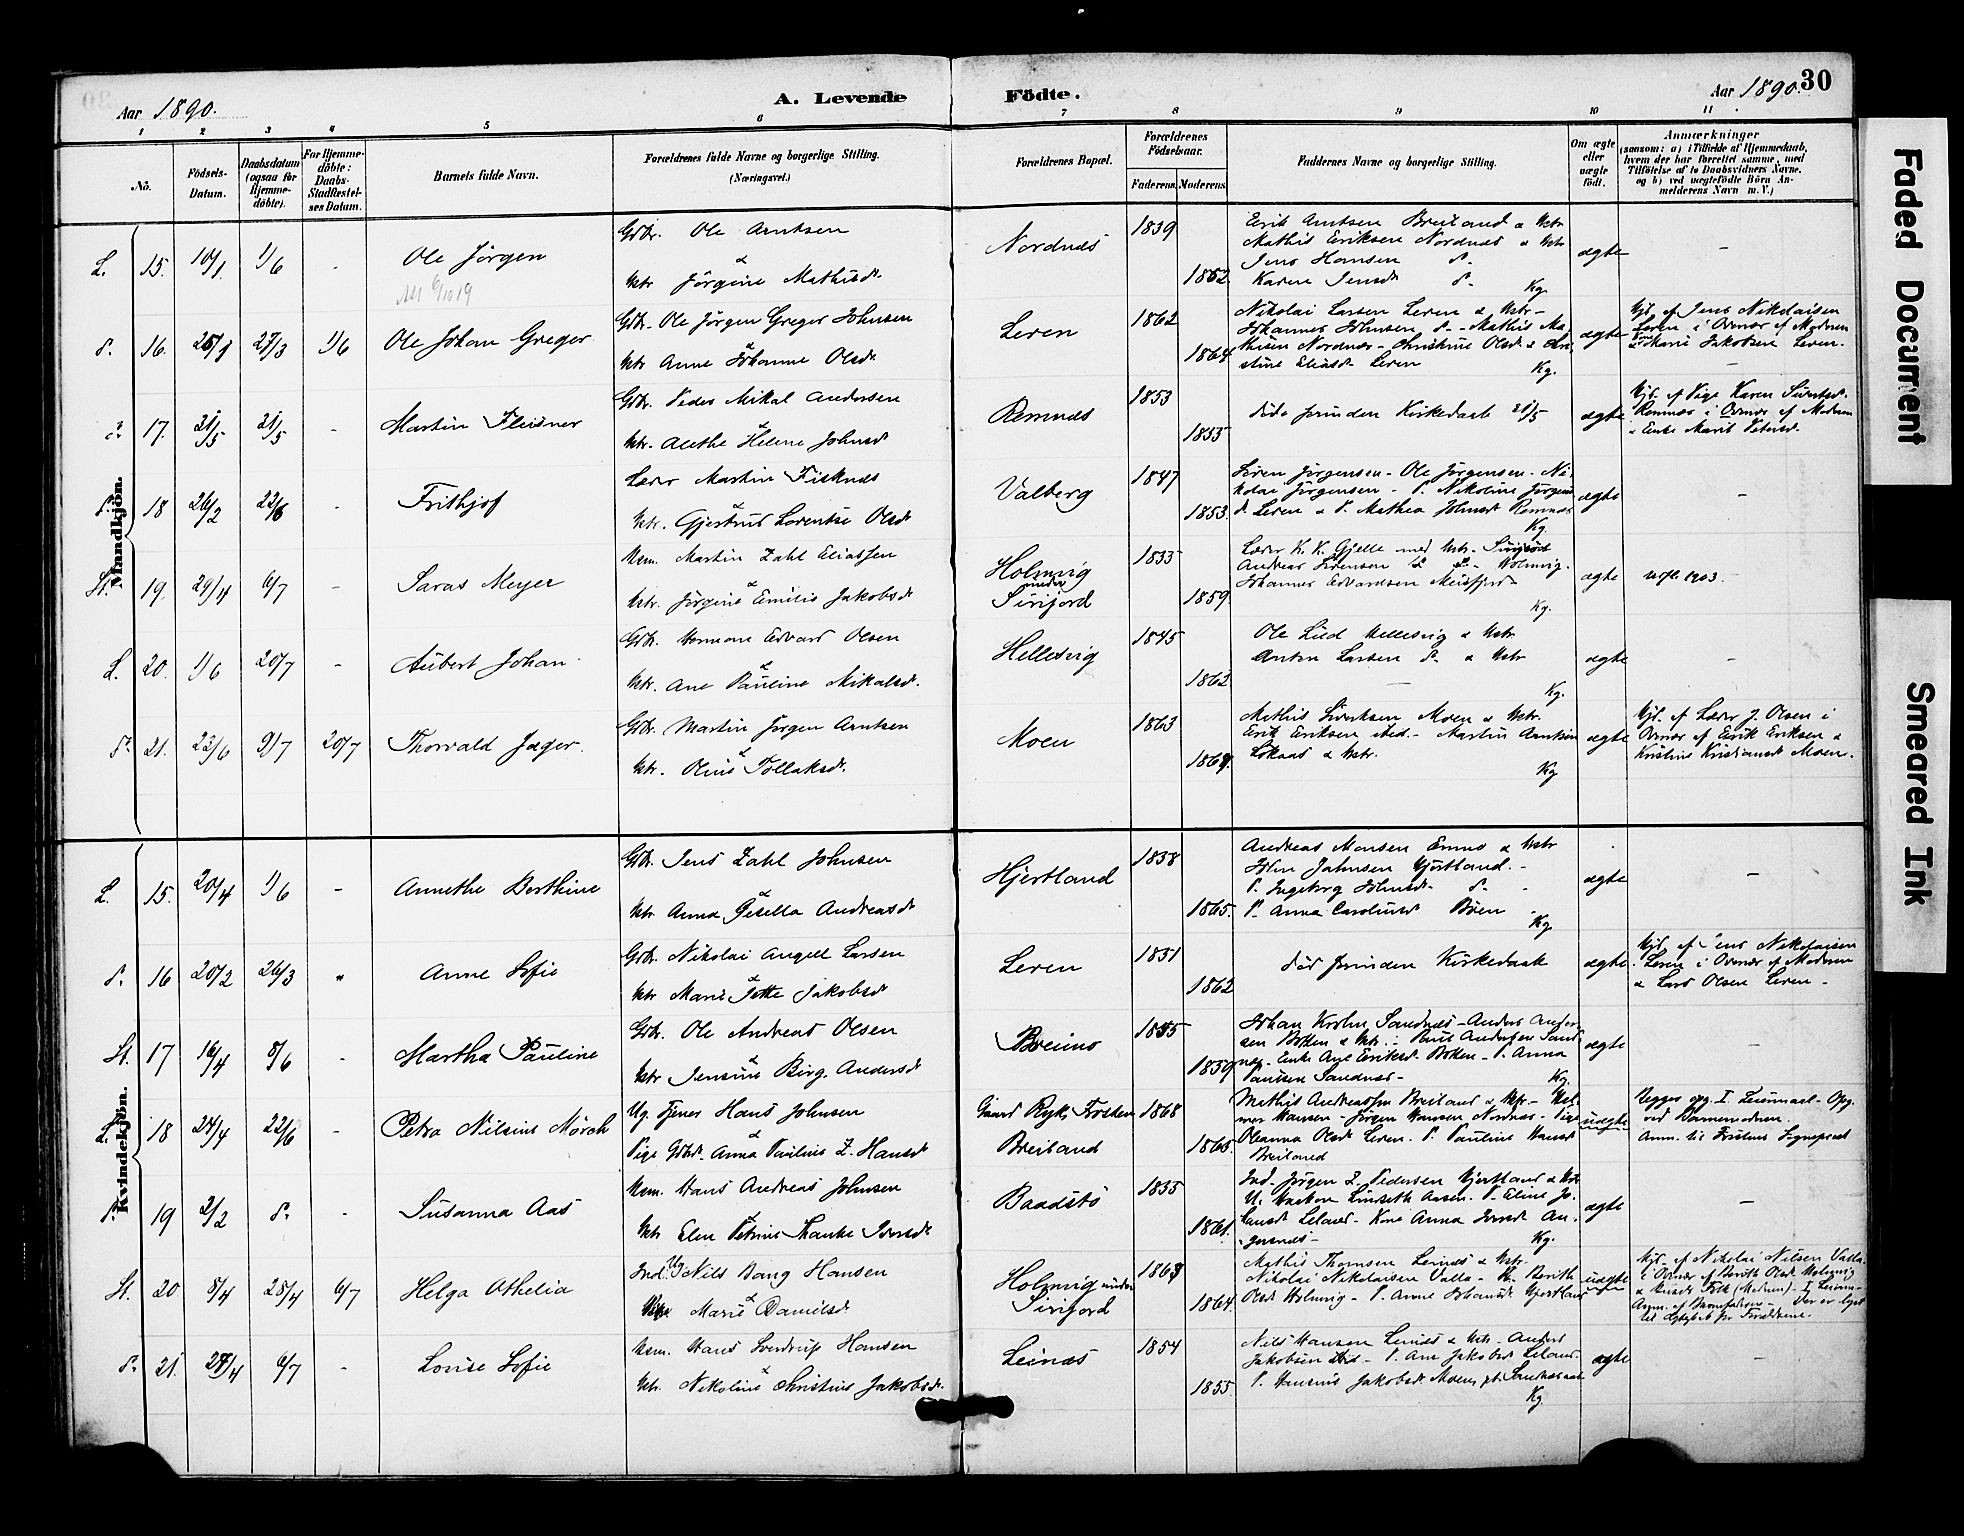 Aar 1890.
A. Levende Födte.
Aar 1890.
30
1 2 3 4 5 6 7 8 9 10 11
No.
Födsels-Datum.
Daabsdatum (ogsaa for Hjemme-döbte).
For Hjemme-döbte: Daabs-Stadfæstel-ses Datum.
Barnets fulde Navn.
Forældrenes fulde Navne og borgerlige Stilling.
(Næringsvei.)
Forældrenes Bopæl.
Forældrenes Födselsaar.
Faderens. Moderens.
Faddernes Navne og borgerlige Stilling.
Om ægte eller uægte födt.
Anmærkninger
(saasom: a) i Tilfælde af Hjemmedaab,
hvem der har forrettet samme, med
Tilföielse af to Daabsvidners Navne.
og b) ved uægtefödte Börn An-
melderens Navn m. V.)
Mandkjön.
L. 15. 10/1 1/6 - Ole Jörgen
Gdbr. Ole Arntsen
&
Hstr Jörgine Mathisdr
Nordnæs 1839 1852.
Eerik Arntsen Breiland & Hstr
Mathis Eriksen Nordnæs & Hstr
Jens Hansen d-
Karen Jensdr d- Kg.
ægte -
d. 16. 27/3 1/6 Ole Johan Greger
Gdbr. Ole Jörgen Greger Johnsen
&
Hstr Anne Johanne Olsdr
Leren 1862 1864
Nikolai Larsen Leren & Hstr-
Johannes Johnsen d- - Mathis Ma
thisen Nordnæs - Christine Olsdr &
stine Eliasdr Leren Kg.
ægte
Hjd. af Jens Nikolaisen
Leren i Overvær af Moderen
& Marie Jakobsen Leren.
17. 21/5 21/5 - Martin Fleisner
Gdbr. Peder Mikal Andersen
&
Hstr. Alethe Helene Johnsdr
Remnæs 1853 1855
död forinden Kirkedaab 21/5
ægte
Hjd. af Pige Karen Sivertsdr.
Remnæs i Overvær af Moderen
& Enke Marit Petersdr.
18 26/2 22/6 - Frithjof
Lærer Martin Fisknæs
&
Hstr. Gjertrud Lorentse Olsdr
Valberg 1847 1853.
Sören Jörgensen - Ole Jörgensen - Ni-
kolai Jörgensen - P. Nikoline Jörgens
d. Leren & P. Mathea Johnsdr Remnæs
Kg
ægte -
St. 19. 29/4 6/7 - Saras Meyer
Hsm. Martin Zahl Eliassen
&
Hstr. Jörgine Emilie Jakobsdr
Holmvig
under
Sörfjord
1833 1859.
Lærer K. K. Gjelle med Hstr-
Andreas Sörensen & d- Holmvig-
Johannes Edvardsen Meisfjord
Kg.
ægte 1903.
L. 20. 1/6 20/7 - Aubert Johan
Gdbr. Hermann Edvard Olsen
&
Hstr. Ane Pauline Mikalsdr.
Hellesvig 1845 1862
Ole Lund Hellesvig & Hstr
Anton Larsen d- & Hstr
Kg.
ægte -
d. 21. 22/6 9/7 20/7 Thorvald Jæger.
Gdbr. Martin Jörgen Arntsen
&
Hstr. Oline Tollaksdr.
Moen 1863 1869.
Mathis Sivertsen Moen & Hstr.
Eerik Eriksen sted. - Martin Arntsen
Lökaas & Hstr. Kg
ægte
Hjd. af Lærer J. Olsen i
Overvær af Eerik Eriksen &
Kristine Kristiansdr Moen.
Kvindekjön.
L. 15. 20/4 1/6 - Annethe Berthine
Gdbr. Jens Zahl Johnsen
&
Hstr Anna Gisella Andreasdr
Hjertland 1838 1865.
Andreas Monsen & Hstr
John Johnsen Hjertland. -
P. Ingeborg Johnsdr d-
P. Anna Carolinedr Böen
Kg
ægte -
d. 16 20/2 26/3 Anne Sofie
Gdbr. Nikolai Angell Larsen
&
Hstr Marie Jette Jakobsdr
Leren 1851 1862
död forinden Kirkedaab
ægte
Hjd. af Jens Nikolaisen
Leren i Overvær af Moderen
& Lars Olsen Leren -
St. 17 16/4 8/6 - Martha Pauline
Gdbr. Ole Andreas Olsen
&
Hstr Jensine Birg. Andersdr
Breimo 1855 1859
Johan Krohn Sandnæs - Anders Ander-
sen Botken & Hstr. - Andersen Sand
næs - Enke Ane Eeriksdr Botken - P. Anna
Paulsen Sandnæs - Kg.
ægte -
18 24/4 22/6 - Petra Nilsine Mörch
Ug. Tjener Hans Johnsen
&
Pige Gdbrd. Anna Pauline Z. Hansdr
Gaard Ryk, Trosten
Breiland
1868 1865
Mathis Andreassen Breiland & Hstr -
Hansen - Jörgen Hansen Nordnæs - Pige
Oleanna Olsdr Leren. P. Pauline Hansdr
Breiland
uægte
Begges opg. I Leiermaal - Opg.
ved Barnemoderen.
Anm. til Fristens Sognepræst
19 2/2 d. - Susanna Aas
Hsm. Hans Andreas Johnsen
&
Hstr Elen Petrine Thanke Iversdr
Baadstö 1835 1861.
Ind. Jörgen Z. Pedersen Hjertland & Hstr
U. Haakon Lindseth Aasen. P. Eline Jo-
hansdr Leland - Kone Anna Iversdr An-
Kg.
ægte -
St. 20 8/4 28/4 6/7 Helga Othelia
Ind. Ug Nils Bang Hansen
&
Pige Marie Danielsdr
Holmvig under
Sörfjord
1863 1864
Mathis Thomsen Leinæs & Hstr.
Nikolai Nikolaisen Valla - Berith
Olsdr Holmvig - P. Anne Johansdr Hjertland
uægte
Hjd. af Nikolai Nilsen Valla
i Overvær af Berith Olsdr Holmvig
Anm. af Barnefaderen -
d. 21. 27/4 6/7 - Lovise Sofie
Hsm. Hans Sverdrup Hansen
&
Hstr. Nikoline Christine Jakobsdr.
Leinæs 1854 1855.
Nils Hansen Leinæs & Hstr - Anders
Jakobsen - P. Ane Jakobsdr Leland
P. Hansine Jakobsdr Moen
Kg.
ægte -
Faded Document
Smeared Ink